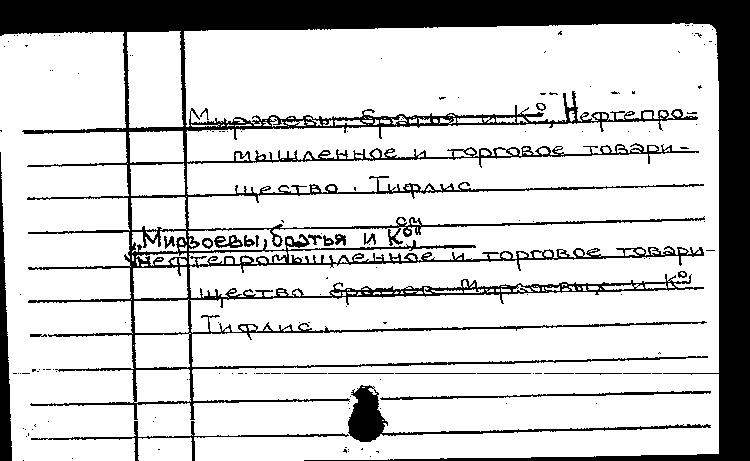 Мирзоевы, братья и К°, Нефтепро-
мышленное и торговое товари-
щество. Тифлис
см
„Мирзоевы, братья и К°“,
Нефтепромышленное и торговое товари-
щество братьев Мирзоевых и К°
Тифлис.